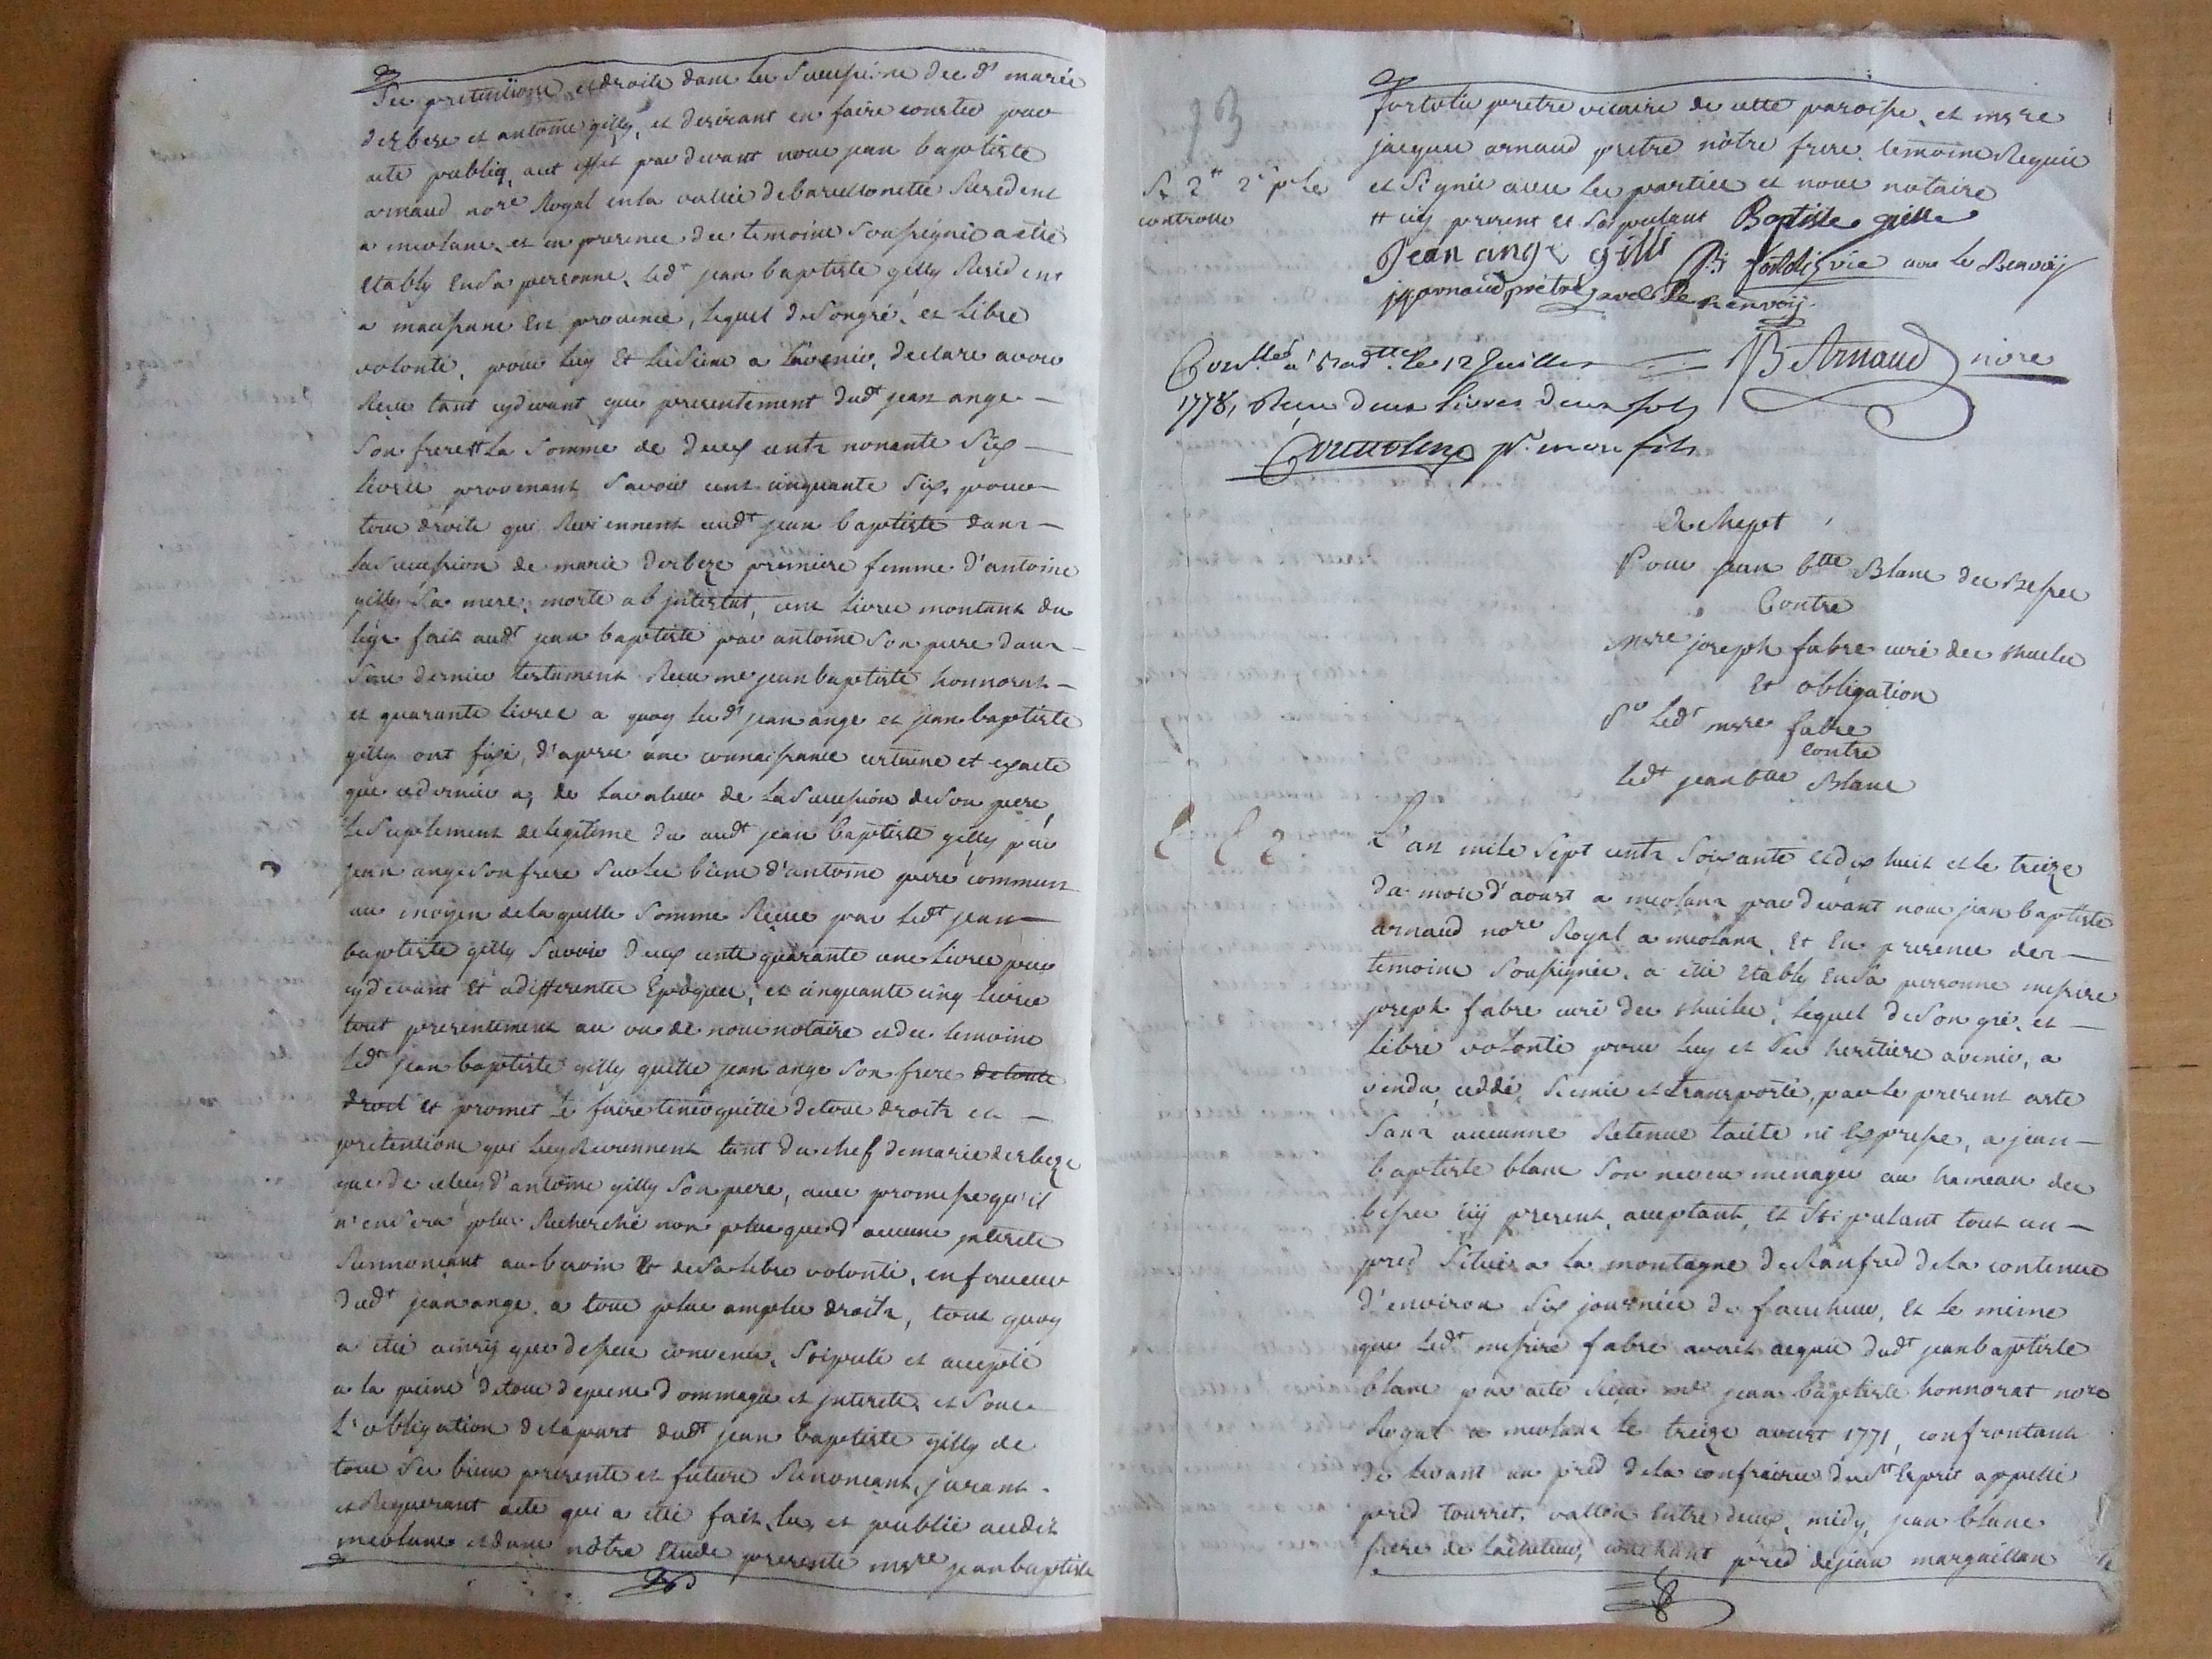 Ses pretentions et droits dans les successions des dts marie
derbeze et antoine gilly, et desirant en faire conster par
acte publiq, aut effet par devant nous jean baptiste
arnaud nore Royal en la vallée de barcellonette Resident
a meolans, et en presence des temoins soussignés a eté
Etably En sa personne, ledt jean baptiste gilly Resident
a en provence, lequel de son gré, et libre
volonté, pour luy Et les siens a lavenir, declare avoir
Reçu tant cydevant que presentement dudt jean ange
son frere # la somme de deux cents nonante six
livres provenant savoir cent cinquante six, pour
tous droits qui Reviennent audt jean baptiste dans
la succession de marie derbeze premiere femme d'antoine
gilly sa mere, morte ab jntestat, cent livres montant du
legs fait audt jean baptiste par antoine son pere dans
son dernier testament Reçu me jean baptiste honnorat
et quarante livres a quoy lesdt jean ange et jean baptiste
gilly ont fixé, d'apres une connaissance certaine et exacte
que ce dernier a, de la valeur de la succession de son pere,
le suplement de legitime du audt jean baptiste gilly par
jean ange son frere sur les biens d'antoine pere commun
au moyen de laquelle somme Reçue par ledt jean
baptiste gilly savoir deux cents quarante une livres pour
cydevant Et a differentes Epoques, et cinquante cinq livres
tout presentement au vu de nous notaire et des temoins
ledt jean baptiste gilly quitte jean ange son frere de toute
droit et promet le faire tenir quitte de tous droits et
pretentions qui luy Reviennent tant du chef de marie derbeze
que de celuy d'antoine gilly son pere, avec promesse qu'il
n'en sera plus Recherché non plus que d'aucuns jnterets
Renonçant au besoin Et de sa libre volonté, en faveur
dudt jean ange, a tous plus amples droits, tout quoy
a eté ainsy que dessus convenu, stipulé et accepté
a la peine de tous depens dommages et jnterets, et sous
l'obligation de la part dudt jean baptiste gilly de
tous ses biens presents et futurs Renonçant, jurant
et Requerant acte qui a eté fait, lu, et publié audit
meolans et dans nôtre Etude presents msre jean baptiste
fortolis pretre vicaire de cette paroisse, et msre
jacques arnaud pretre nôtre frere temoins Requis
et signés avec les parties et nous notaire
# icy present et stipulant Baptiste gille
Jean ange gilli B fortolis vic avec le Renvoij
jj arnaud prêtre avec le renvoij
JB Arnaud nore
93
Rs 2# 2s pr le
controlle
Conllé a Barctte le 12 Juillet
1778, Reçu deux livres deux sols
pr. mon fils
Achept
Pour jean btte Blanc des Besses
Contre
msre joseph fabre curé des thuiles
Et obligation
Pr ledt msre fabre
Contre
ledt jean btte Blanc
L'an mile sept cents soixante et dix huit et le treize
du mois d'aoust a meolans par devant nous jean baptiste
arnaud nore Royal a meolans, Et En presence des
temoins soussignés, a eté Etably En sa personne messire
joseph fabre curé des thuiles, lequel de son gré, et
libre volonté pour luy et ses heritiers avenir, a
vendu, ceddé, Remis et transporté, par le present acte
sans aucunne Retenue tacite ni Expresse, a jean
baptiste blanc son neveu menager au hameau des
besses icy present, acceptant, Et stipulant tout un
pred situé a la montagne de de la contenue
d'environ six journées de faucheur, Et le même
que ledt messire fabre avoit acquis dudt jean baptiste
blanc par acte Reçu me jean baptiste honnorat nore
Royal a meolans le treize avust 1771, confrontant
de levant un pred de la confrairie du st Esprit appellé
pred tourret, vallon Entre deux, midy, jean blanc
frere de l'acheteur, couchant pred de jean margaillan